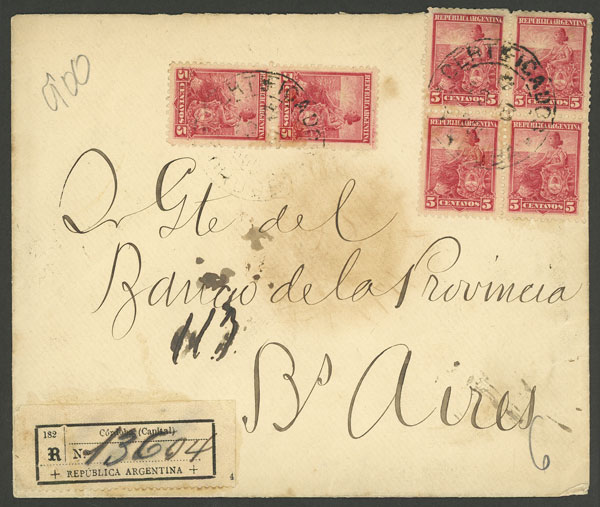 900
CENTAVOS
5
5
REPUBLICA ARGENTINA
CENTAVOS
5
5
REPUBLICA ARGENTINA
REPUBLICA ARGENTINA
5 CENTAVOS 5
REPUBLICA ARGENTINA
5 CENTAVOS 5
REPUBLICA ARGENTINA
5 CENTAVOS 5
REPUBLICA ARGENTINA
5 CENTAVOS 5
CERTIFICADO
CERTIFICADO
Sr Gte del
Banco de la Provincia
113
Bs Aires
6
182
Córdoba (Capital)
R
No 13604
REPÚBLICA ARGENTINA
4